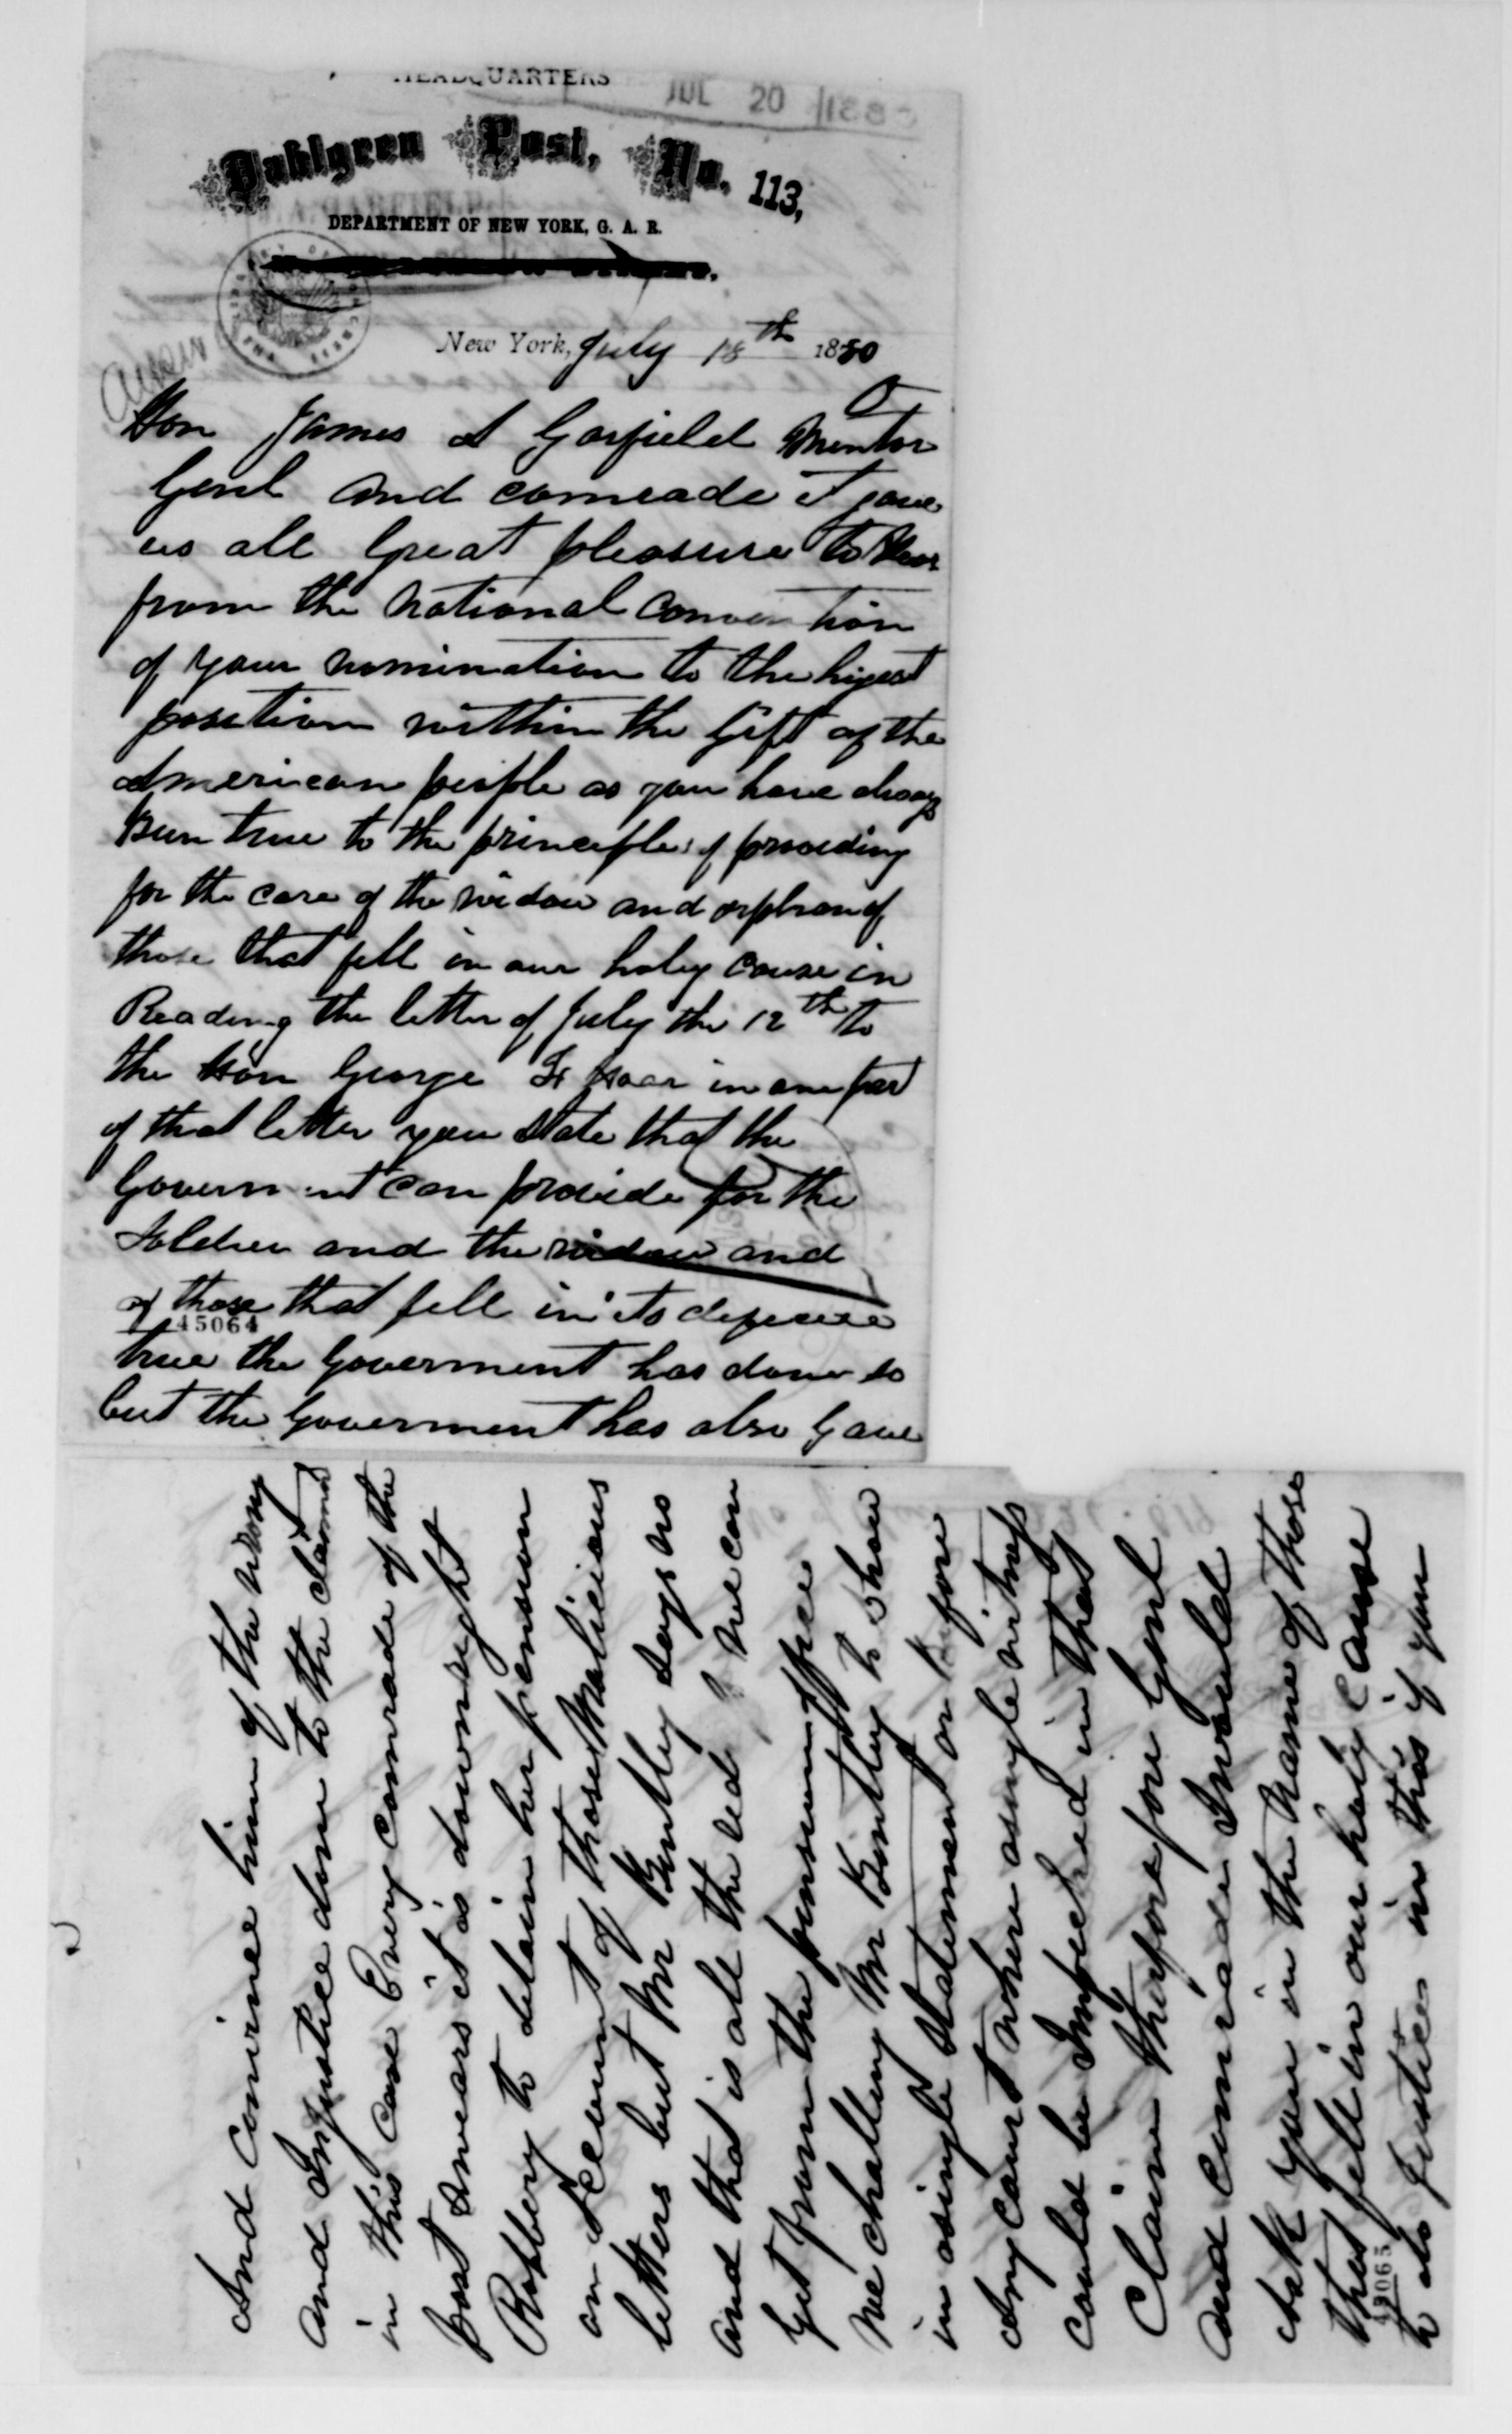 HEADQUARTERS
JUL 20 1880
Dahlgren Post, No. 113,
DEPARTMENT OF NEW YORK, G. A. R.
New York, July 18th 1880
Hon James A Garfield Mentor O
Genl and comrade it gave
us all Great pleasure to hear
from the National convention
of your nomination to the higest
position within the Gift of the
American people as you have always
Been true to the principles of providing
for the care of the widow and orphan of
those that fell in our holy cause in
Reading the letter of July the 12th to
the Hon George F Hoar in one part
of that letter you state that the
Government can provide for the
Soldier and the widow and
of those that fell in its defence
45064
true the Goverment has done so
but the Goverment has also Gave
And convince him of the wrong
and Injustice done to the claimant
in this case Every comrade of the
post Swears it is downright
Robbery to detain her pension
on Account of those Malicious
letters but Mr Bentley says no
and that is all the we can
Get from the pension office
We challeng Mr Bentley to show
in a single Statement on before
Any court where a single witness
could be Impeched in that
Claim therefore Genl
and comrade I would
Ask you in the Name of those
that fell in our holy Cause
to do Justice in this if you
45065